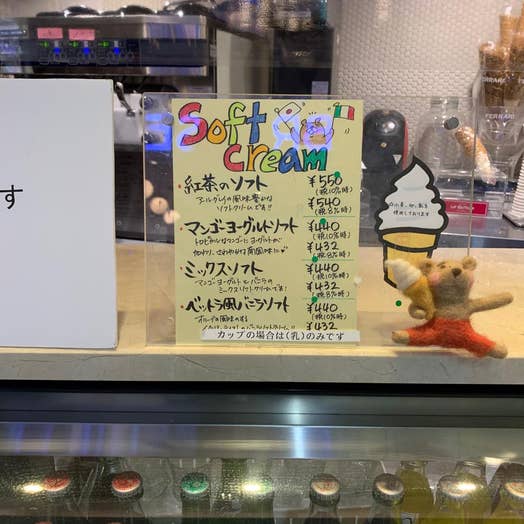 す
Soft
cream
・紅茶のソフト
¥550
(税10%時)
アールグレイの風味豊かな
ソフトクリームです!!
¥540
(税8%時)
・マンゴーヨーグルトソフト
¥440
(税10%時)
トロピカルなマンゴーにヨーグルトが
¥432
(税8%時)
・ミックスソフト
¥440
(税10%時)
マンゴーヨーグルトとバニラの
ミックスソフトクリームです!
¥432
(税8%時)
・ベットラ風バニラソフト
¥440
(税10%時)
¥432
カップの場合は(乳)のみです
FERRARA